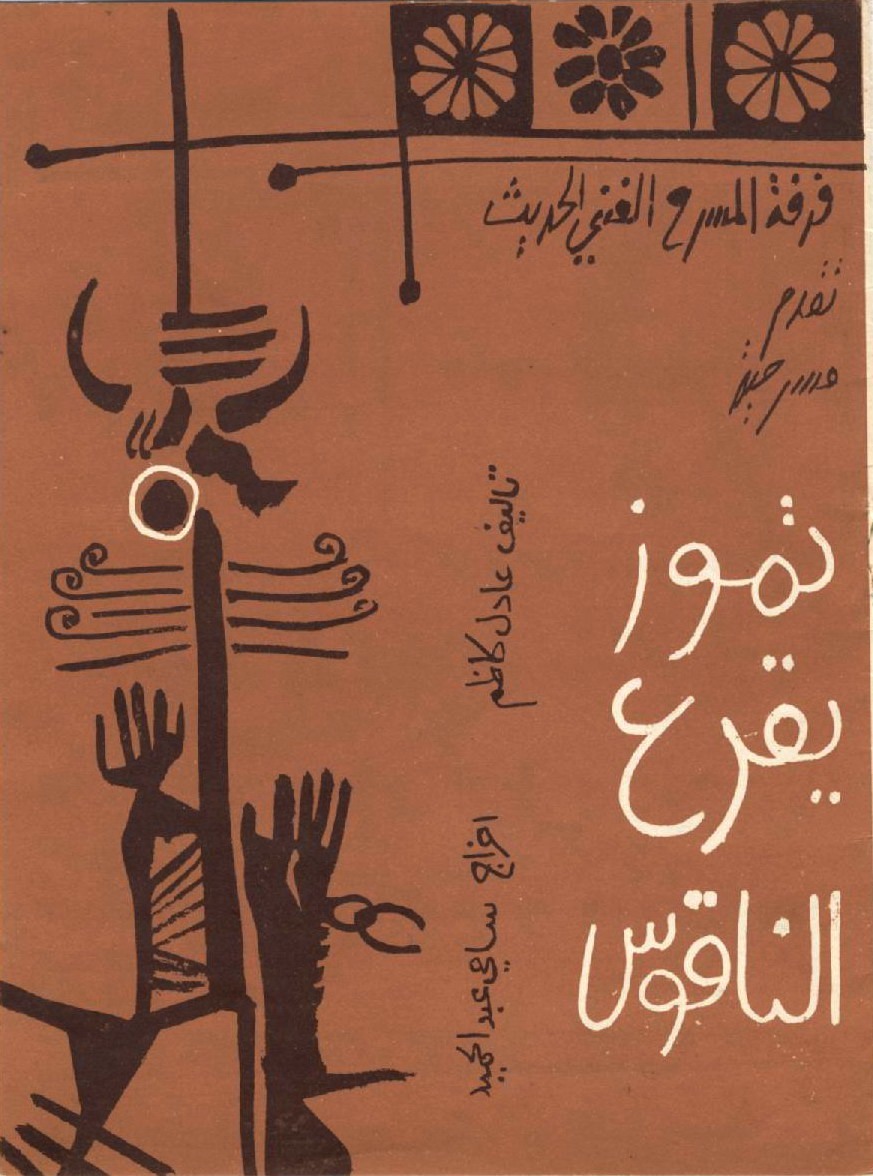 فرقة المسرح الفني الحديث
تقدم
مسرحية
تموز
يقرع
الناقوس
تاليف عادل كاظم
اخراج سامي عبد الحميد